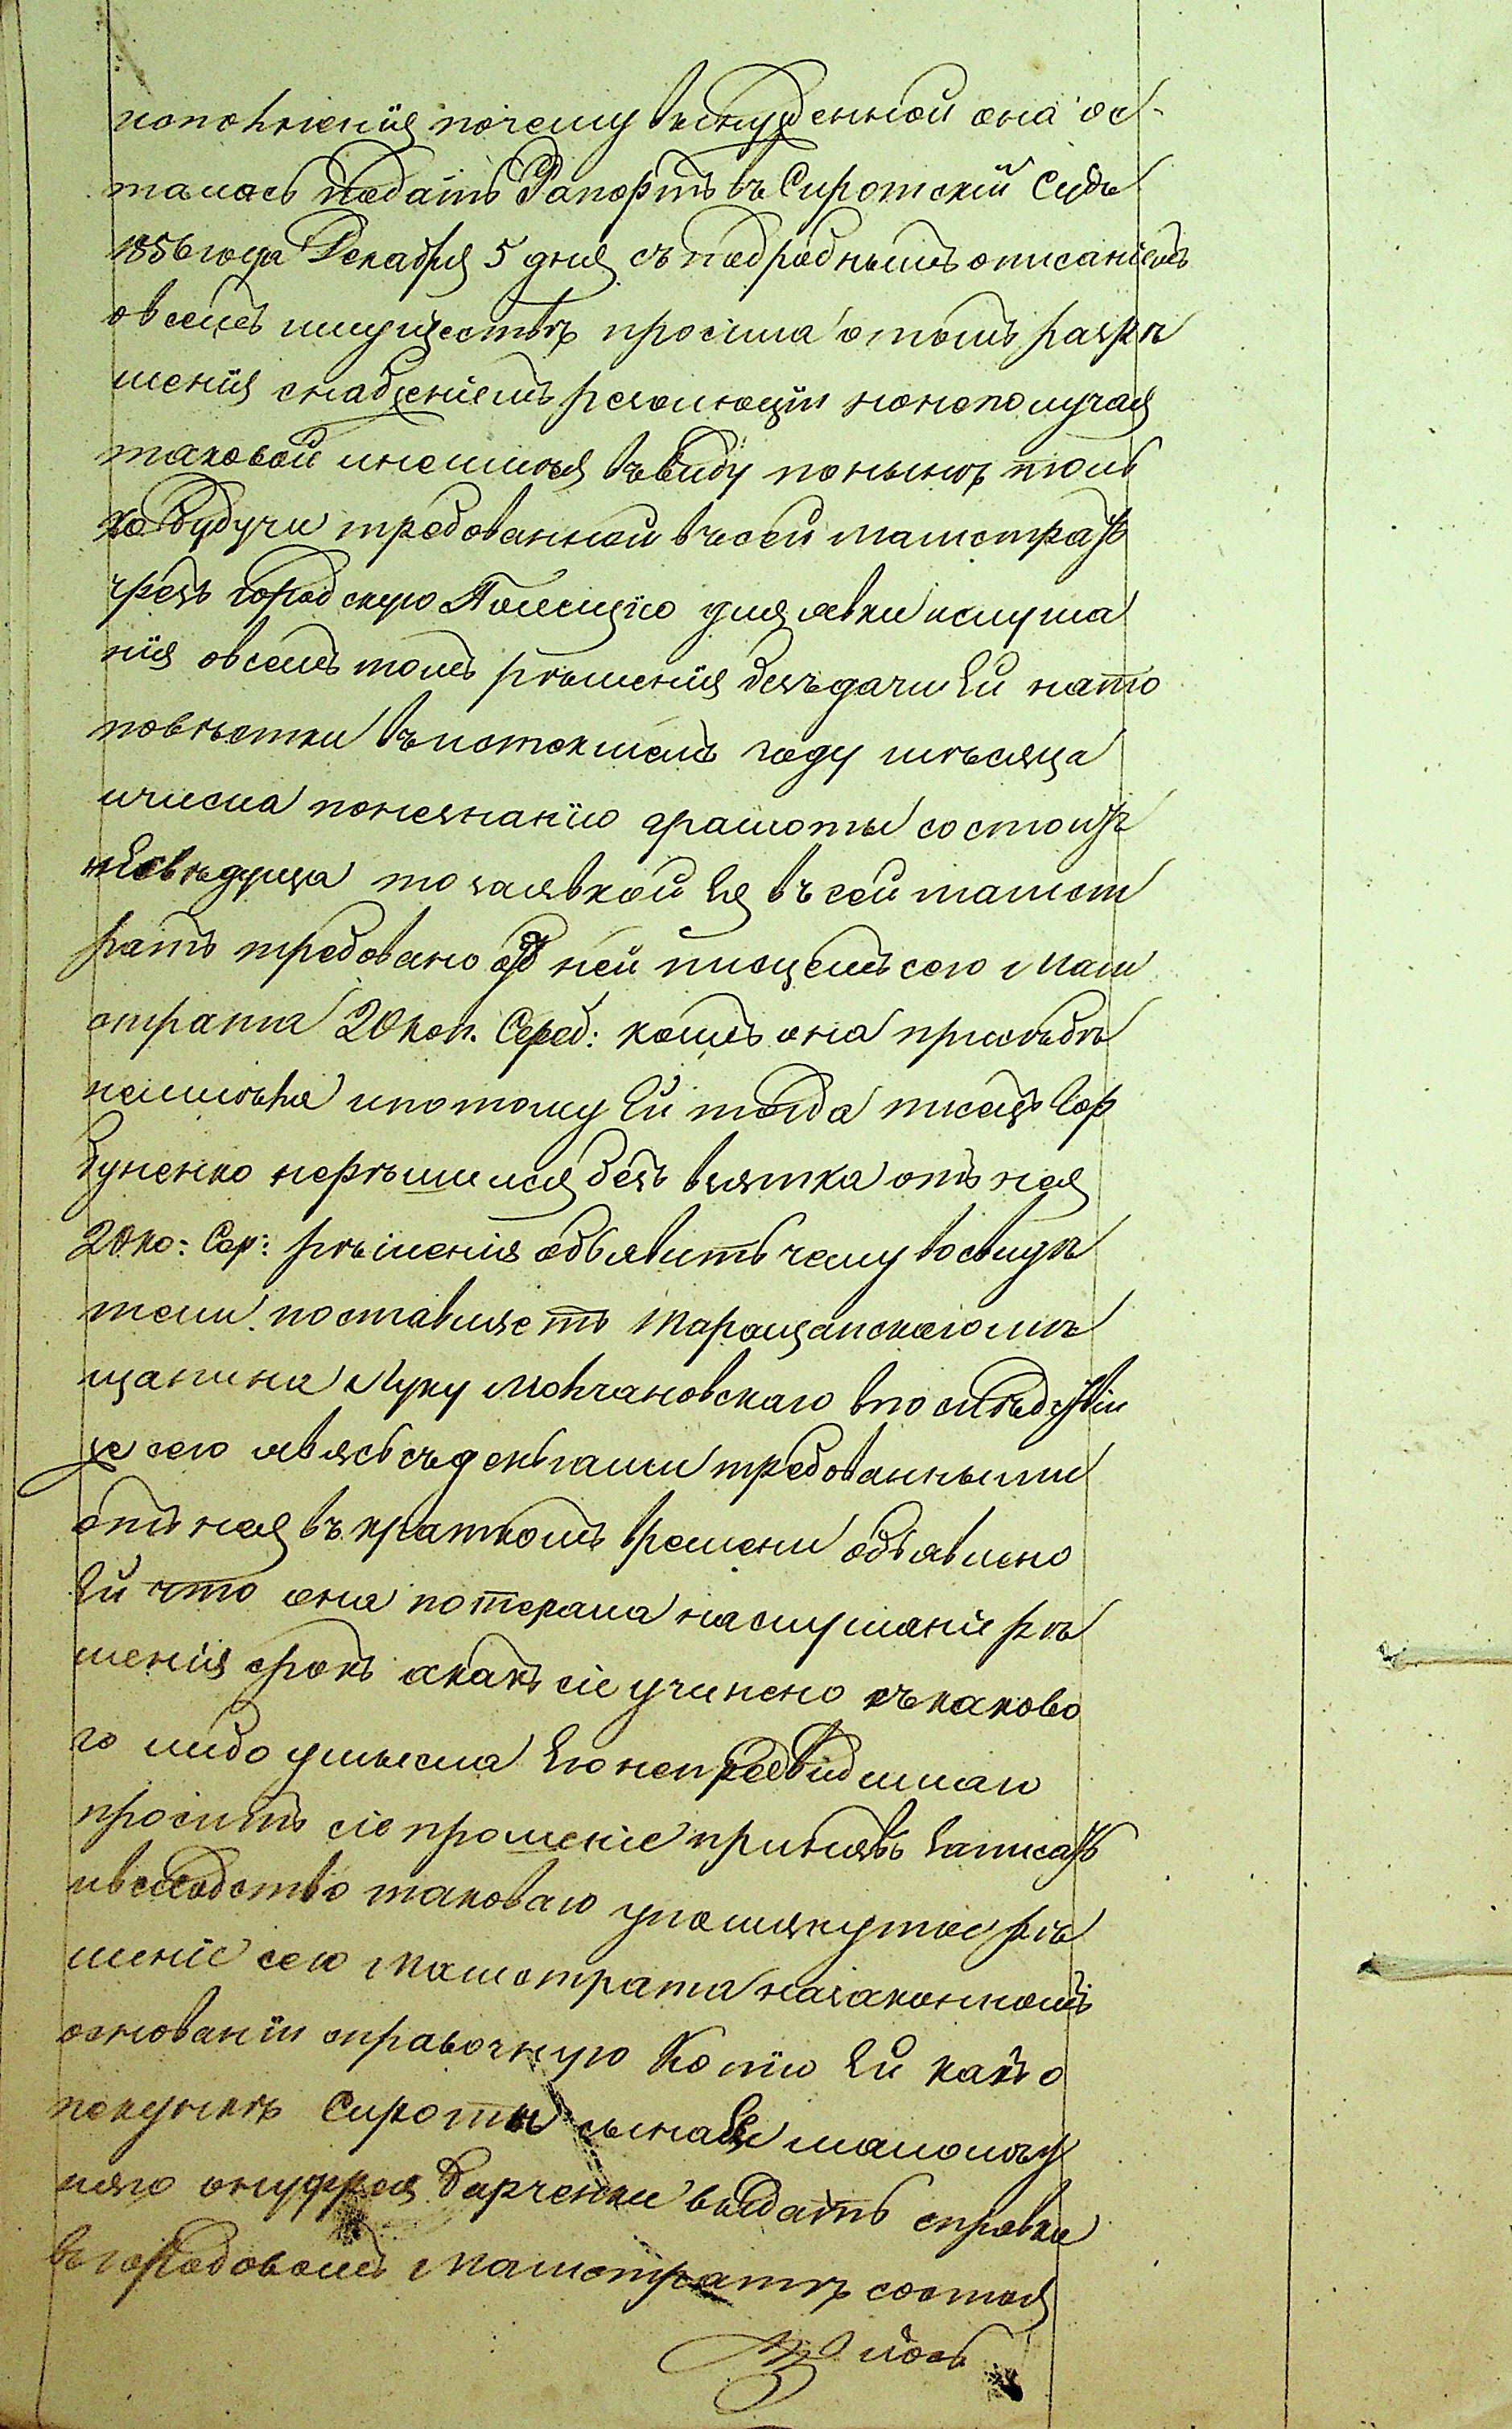 пополненія почему вынужденной она ос-
талась подать Рапортъ въ Сиротскій Судъ
1856 года Декабря 5 дня съ подробнымъ описаніемъ
о всемъ имуществѣ просила о томъ разрѣ
шенія снабженіемъ резолюціи но неполучая
таковой инеимѣя въ виду по нынѣ толь
ко будучи требованной въ сей магистратъ
чрезъ городскую Полецію для явки кслуша
нія о всемъ томъ рѣшенія безъ дачи Ей на то
повѣстки въ истекшемъ году мѣсяца
и числа понезнанію грамоты состоитъ
несвѣдуща то заявкой Ея въ сей магист
ратъ требовано отъ ней писцемъ сего Маги
страта 20 коп. Сереб: коимъ она при себѣ
неимѣла и потому Ей тогда писецъ Гор
буненко нерѣшился безъ взятка отъ нея
20 ко: Сер: рѣшенія объявить чему во свидѣ
тели поставляетъ Таращанскаго мѣ
щанина Луку Молчановскаго впослѣдствіи
же сего явясь съ деньгами требованными
отъ нея въ краткомъ времени объявлено
Ей что она потеряла наслушаніе рѣ
шенія срокъ а какъ сіе учинено съ каково
го либо умысла Ею непредвидимаго
проситъ сіе прошеніе принявъ записать
и вслѣдство таковаго упомянутое рѣ
шеніе сего Магистрата на законномъ
основаніи справочную Копію Ей какъ о
пекункѣ Сироты сына Ея малолѣт
няго онуфрія Барченки выдать справки
въ городовомъ Магистратѣ состоя